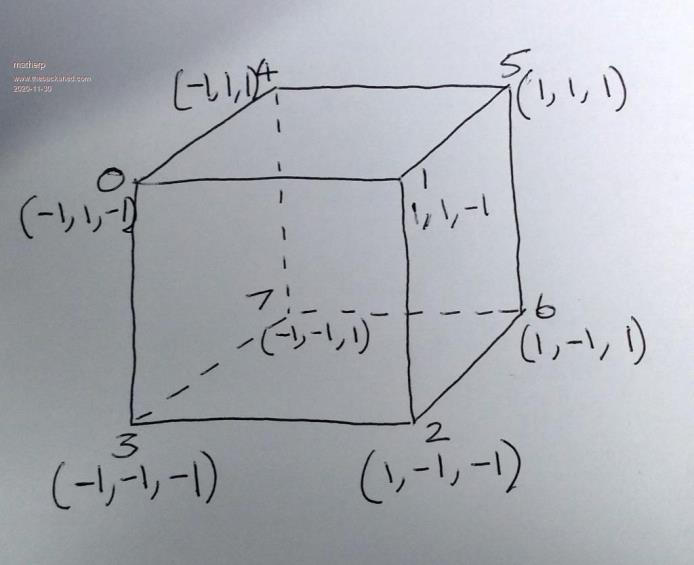 matherp
www.thebackshed.com
2020-11-30
4
(-1,1,1)
5
(1, 1, 1)
0
(-1, 1, -1)
1
1, 1, -1
7
(-1,-1, 1)
6
(1, -1, 1)
3
(-1,-1,-1)
2
(1,-1,-1)